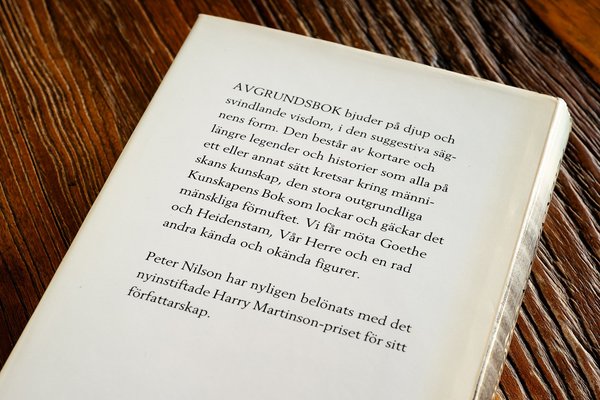 AVGRUNDSBOK bjuder på djup och
svindlande visdom, i den suggestiva säg-
nens form. Den består av kortare och
längre legender och historier som alla på
ett eller annat sätt kretsar kring männi-
skans kunskap, den stora outgrundliga
Kunskapens Bok som lockar och gäckar det
mänskliga förnuftet. Vi får möta Goethe
och Heidenstam, Vår Herre och en rad
andra kända och okända figurer.
Peter Nilson har nyligen belönats med det
nyinstiftade Harry Martinson-priset för sitt
författarskap.